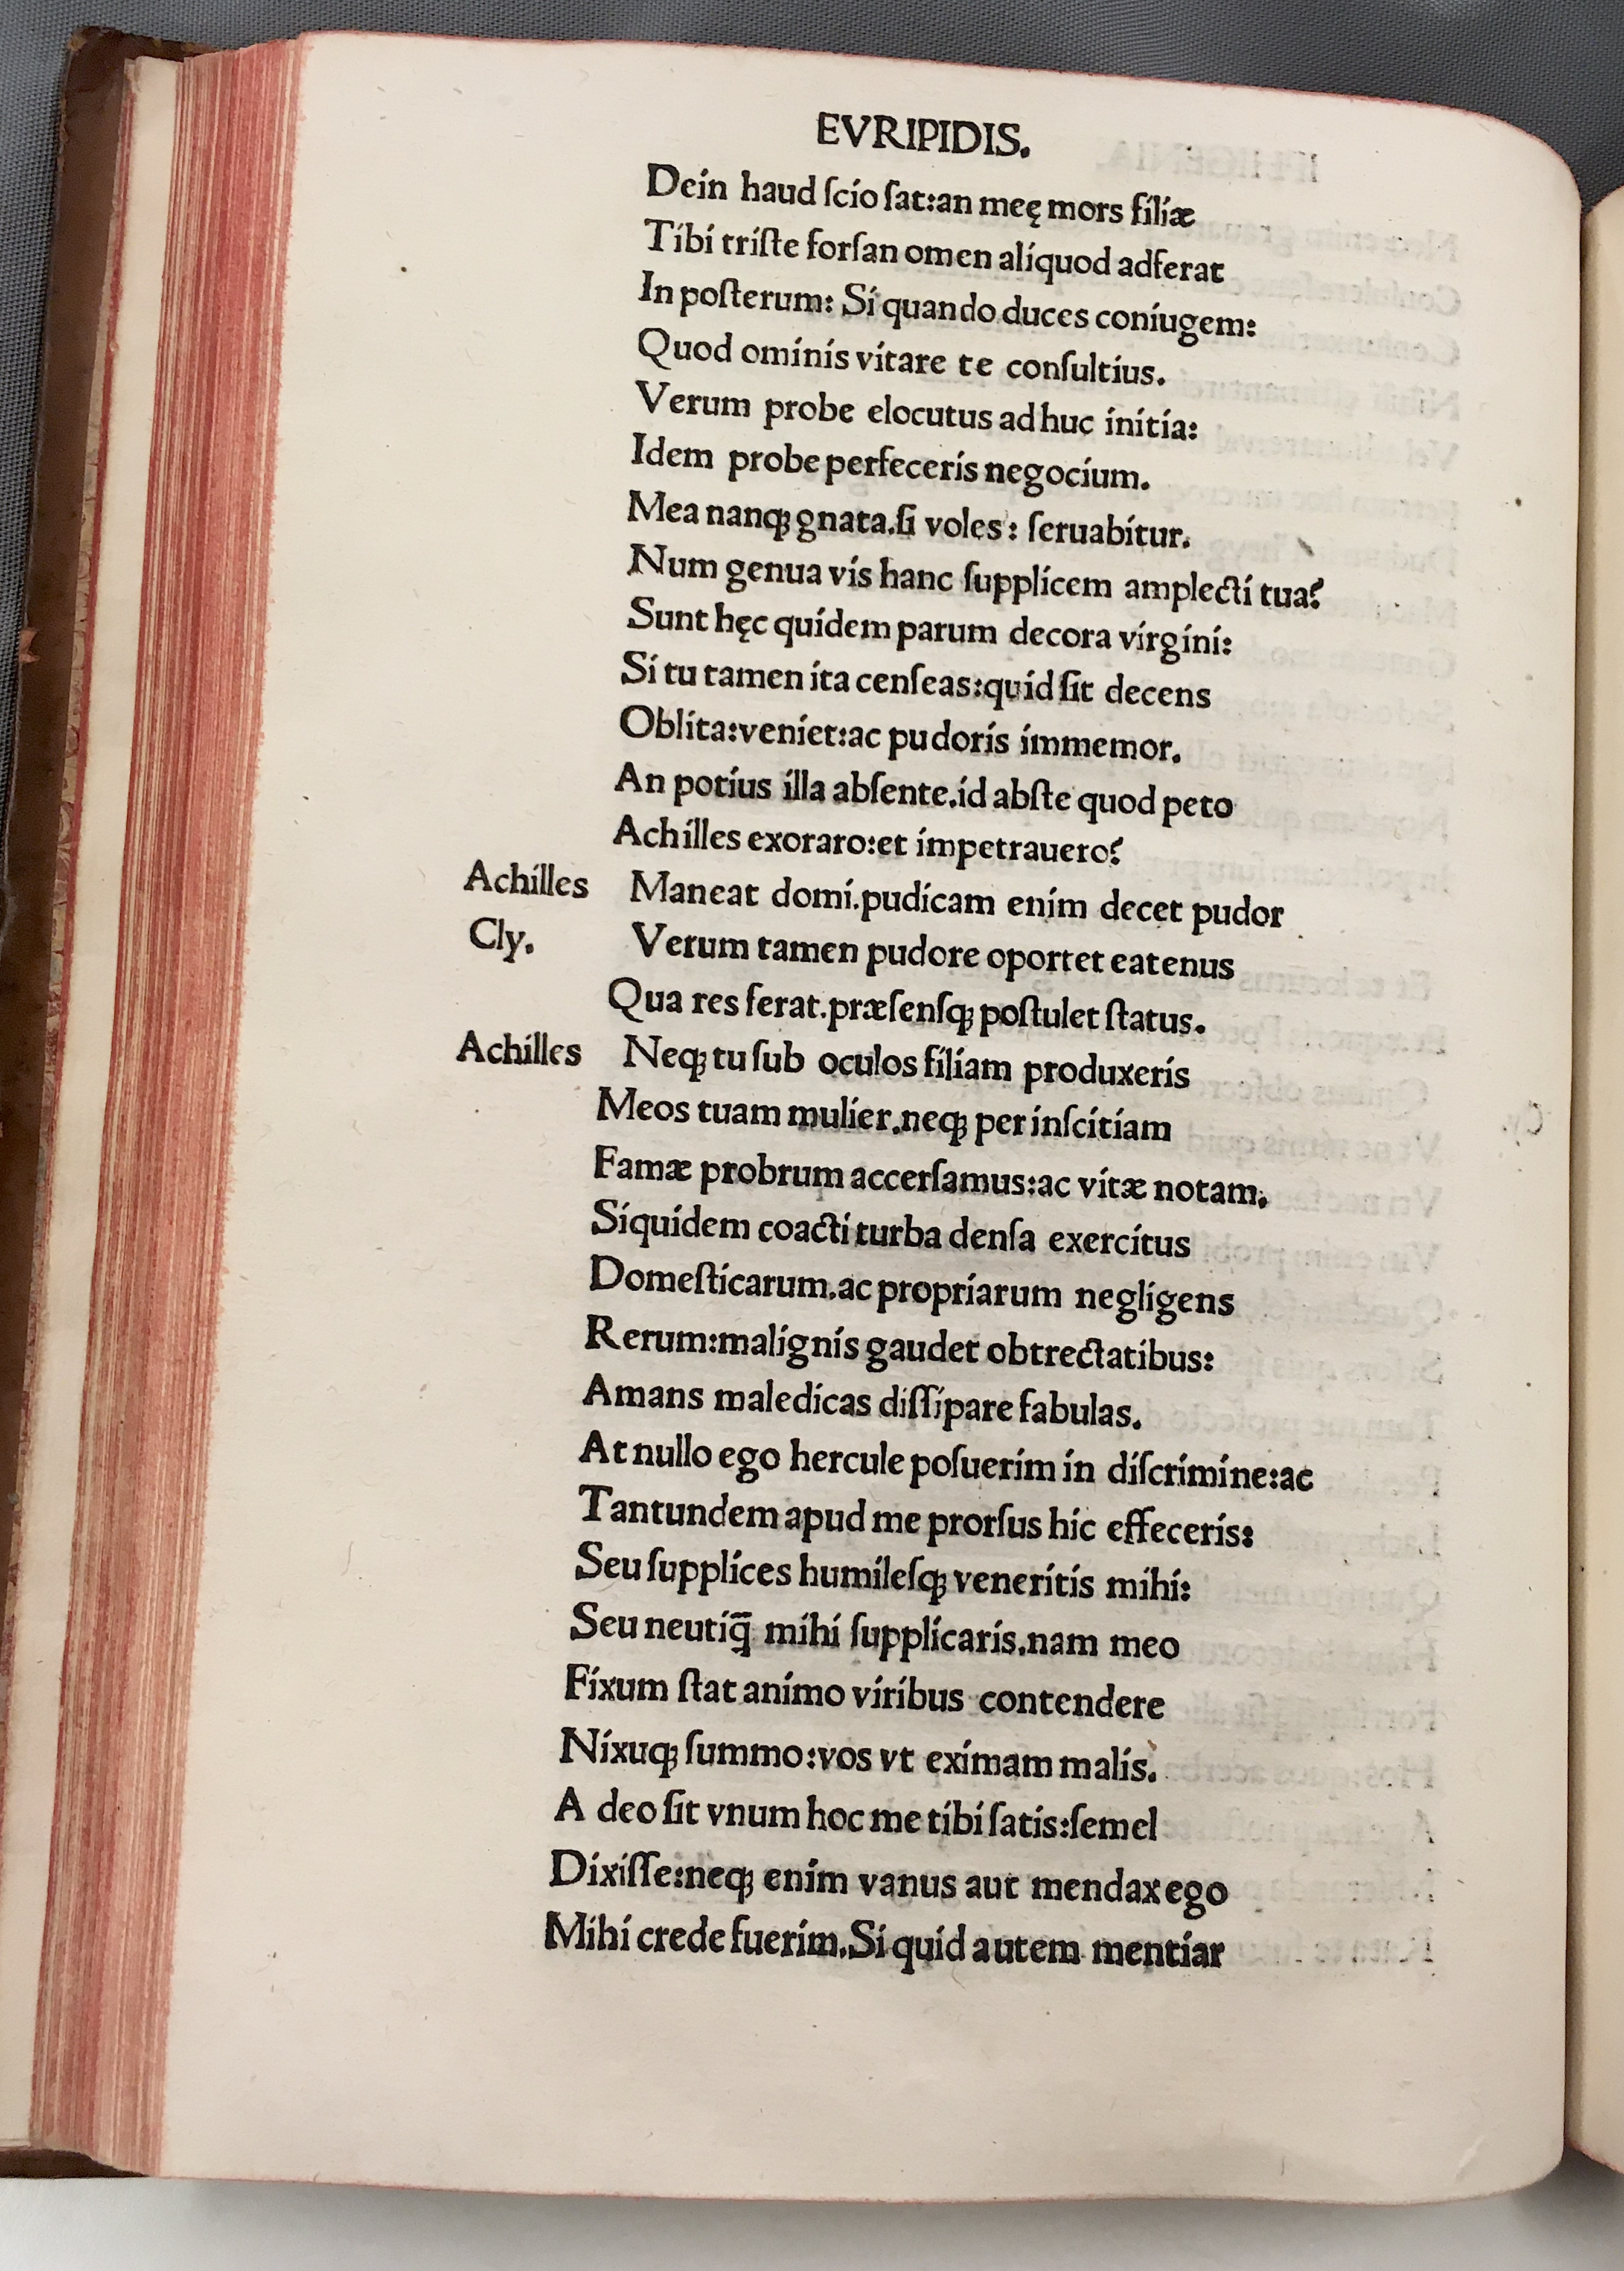 EVRIPIDIS.
Dein haud ſcio ſat:an meę mors filiæ
Tibi triſte forſan omen aliquod adferat
In poſterum: Si quando duces coniugem:
Quod ominis vitare te conſultius.
Verum probe elocutus adhuc initia:
Idem probe perfeceris negocium.
Mea nanqꝫ gnata.ſi voles: ſeruabitur.
Num genua vis hanc ſupplicem amplecti tua?
Sunt hęc quidem parum decora virgini:
Si tu tamen ita cenſeas:quid ſit decens
Oblita:veniet:ac pudoris immemor.
An potius illa abſente.id abſte quod peto
Achilles exoraro:et impetrauero?
Achilles Maneat domi.pudicam enim decet pudor
Cly. Verum tamen pudore oportet eatenus
Qua res ferat.præſenſqꝫ poſtulet ſtatus.
Achilles Neqꝫ tu ſub oculos filiam produxeris
Meos tuam mulier.neqꝫ per inſcitiam
Famæ probrum accerſamus:ac vitæ notam.
Siquidem coacti turba denſa exercitus
Domeſticarum.ac propriarum negligens
Rerum:malignis gaudet obtrectatibus:
Amans maledicas diſſipare fabulas.
At nullo ego hercule poſuerim in diſcrimine:ac
Tantundem apud me prorſus hic effeceris:
Seu ſupplices humileſqꝫ veneritis mihi:
Seu neutiq̄ mihi ſupplicaris.nam meo
Fixum ſtat animo viribus contendere
Nixuqꝫ ſummo:vos vt eximam malis.
A deo ſit vnum hoc me tibi ſatis:ſemel
Dixiſſe:neqꝫ enim vanus aut mendax ego
Mihi crede fuerim.Si quid autem mentiar